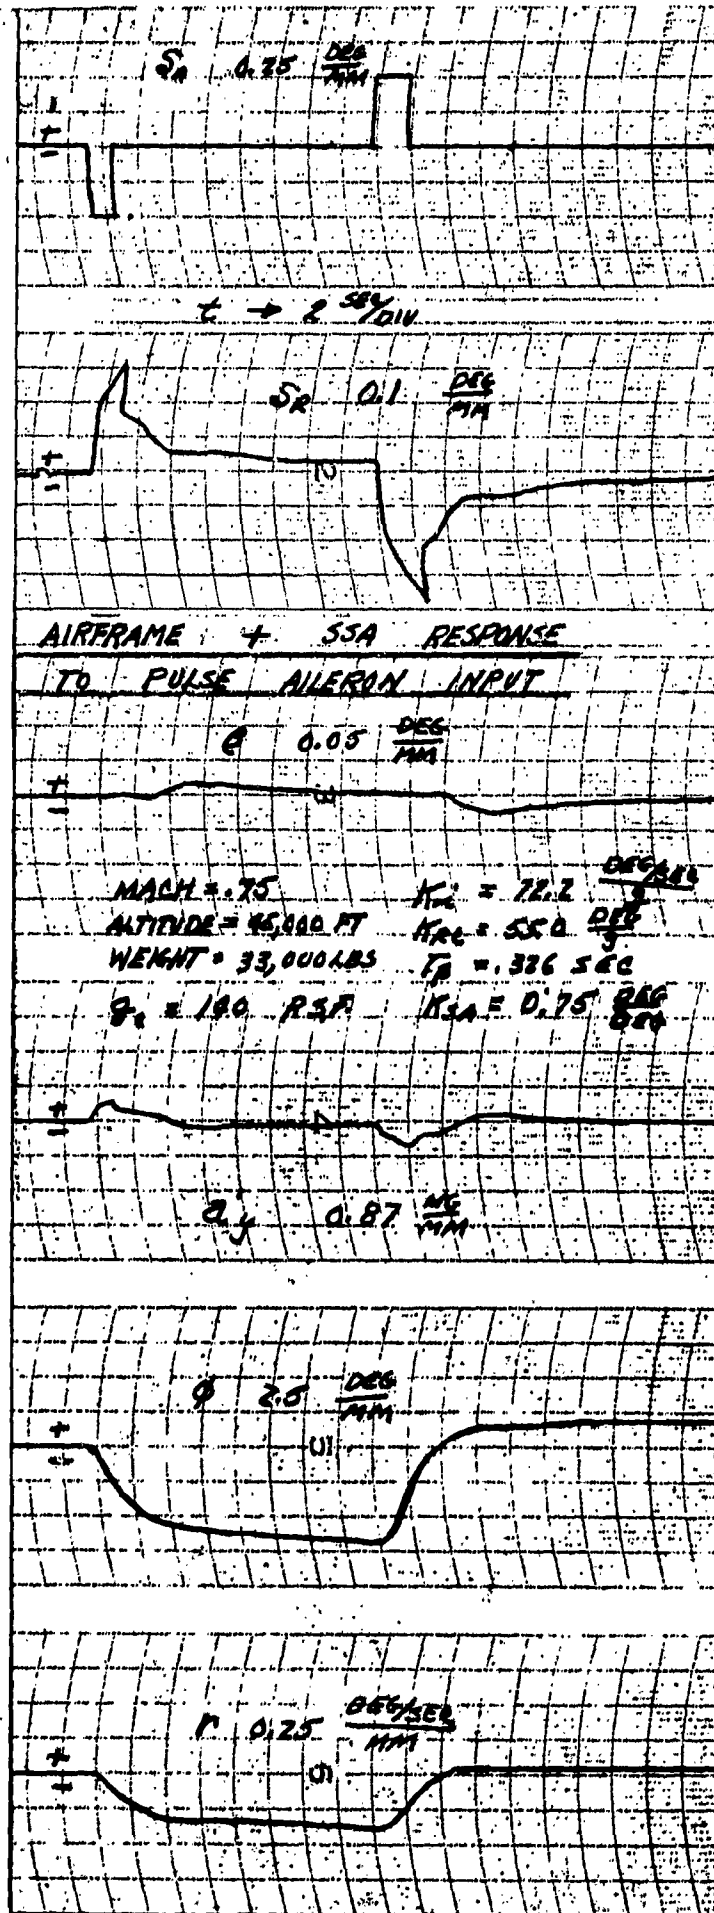 δA 0.25 DEG/MM
+
-
t → 2 SEC/DIV
δR 0.1 DEG/MM
+
-
2
AIRFRAME + SSA RESPONSE
TO PULSE AILERON INPUT
0.05 DEG/MM
+
-
3
MACH = .75
ALTITUDE = 45,000 FT
WEIGHT = 33,000 LBS
= 550 DEG/g
= .326 SEC
KSA = 0.75 DEG/DEG
+
-
4
ay 0.87 MG/MM
φ 2.5 DEG/MM
+
-
5
r 0.25 DEG/SEC/MM
+
-
6